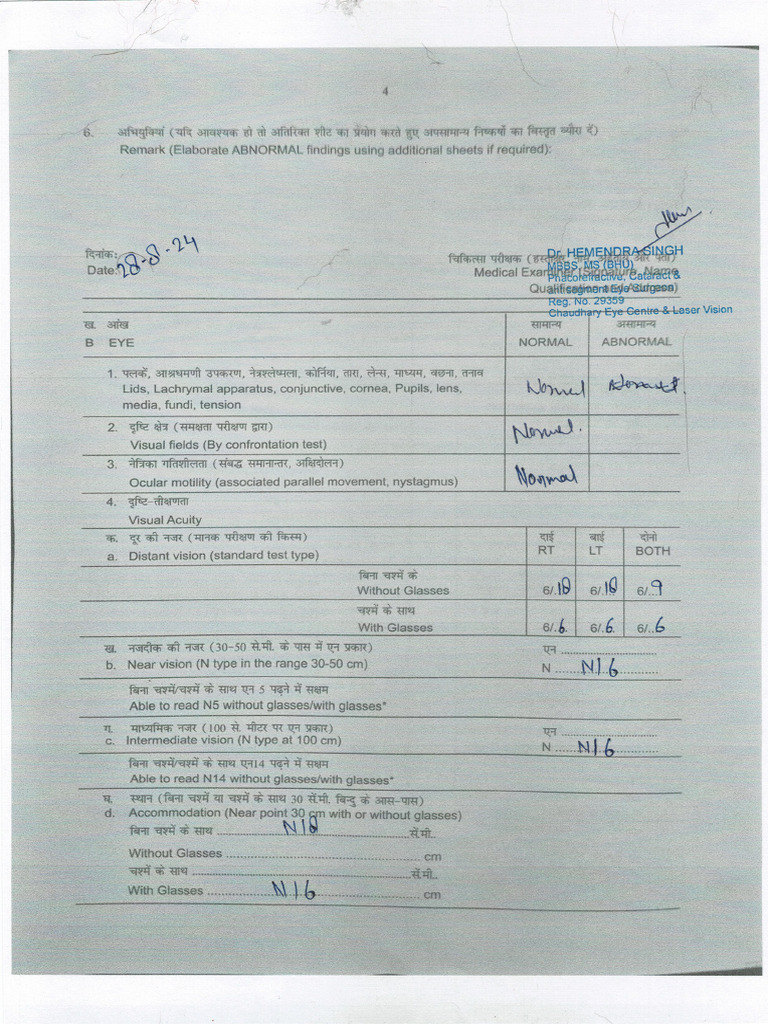 4
6. अभियुक्तियां (यदि आवश्यक हो तो अतिरिक्त शीट का प्रयोग करते हुए अपसामान्य निष्कर्षों का विस्तृत व्यौरा दें)
Remark (Elaborate ABNORMAL findings using additional sheets if required):
दिनांक:
Date: 28-8-24
चिकित्सा परीक्षक (हस्ताक्षर नाम अर्हताएं और पता)
Medical Examiner (Signature, Name
Qualification and Address)
Dr. HEMENDRA SINGH
MBBS, MS (BHU)
Phacorefractive, Cataract &
antisegment Eye Surgeon
Reg. No. 29359
Chaudhary Eye Centre & Laser Vision
ख. आंख सामान्य असामान्य
B EYE NORMAL ABNORMAL
1. पलकें, आश्रधमणी उपकरण, नेत्रश्लेष्मला, कोर्निया, तारा, लेन्स, माध्यम, वछना, तनाव
Lids, Lachrymal apparatus, conjunctive, cornea, Pupils, lens, Normal
media, fundi, tension
2. दृष्टि क्षेत्र (समक्षता परीक्षण द्वारा) Normal.
Visual fields (By confrontation test)
3. नेत्रिका गतिशीलता (संबद्ध समानान्तर, अक्षिदोलन)
Ocular motility (associated parallel movement, nystagmus) Normal
4. दृष्टि-तीक्षणता
Visual Acuity
क. दूर की नजर (मानक परीक्षण की किस्म) दाई बाई दोनो
a. Distant vision (standard test type) RT LT BOTH
बिना चश्में के
Without Glasses 6/.18 6/.18 6/..9
चश्में के साथ
With Glasses 6/.6. 6/..6. 6/..6
ख. नजदीक की नजर (30-50 से.मी. के पास में एन प्रकार) एन ............................
b. Near vision (N type in the range 30-50 cm) N ........N16............
बिना चश्में/चश्में के साथ एन 5 पढ़ने में सक्षम
Able to read N5 without glasses/with glasses*
ग. माध्यमिक नजर (100 से. मीटर पर एन प्रकार) एन ............................
c. Intermediate vision (N type at 100 cm) N .......N16.............
बिना चश्में/चश्में के साथ एन14 पढ़ने में सक्षम
Able to read N14 without glasses/with glasses*
घ. स्थान (बिना चश्में या चश्में के साथ 30 सें.मी. बिन्दु के आस-पास)
d. Accommodation (Near point 30 cm with or without glasses)
बिना चश्में के साथ ..................N18..........................सें.मी..
Without Glasses ...................................................... cm
चश्में के साथ ................................................................सें.मी..
With Glasses ..................N16............................ cm